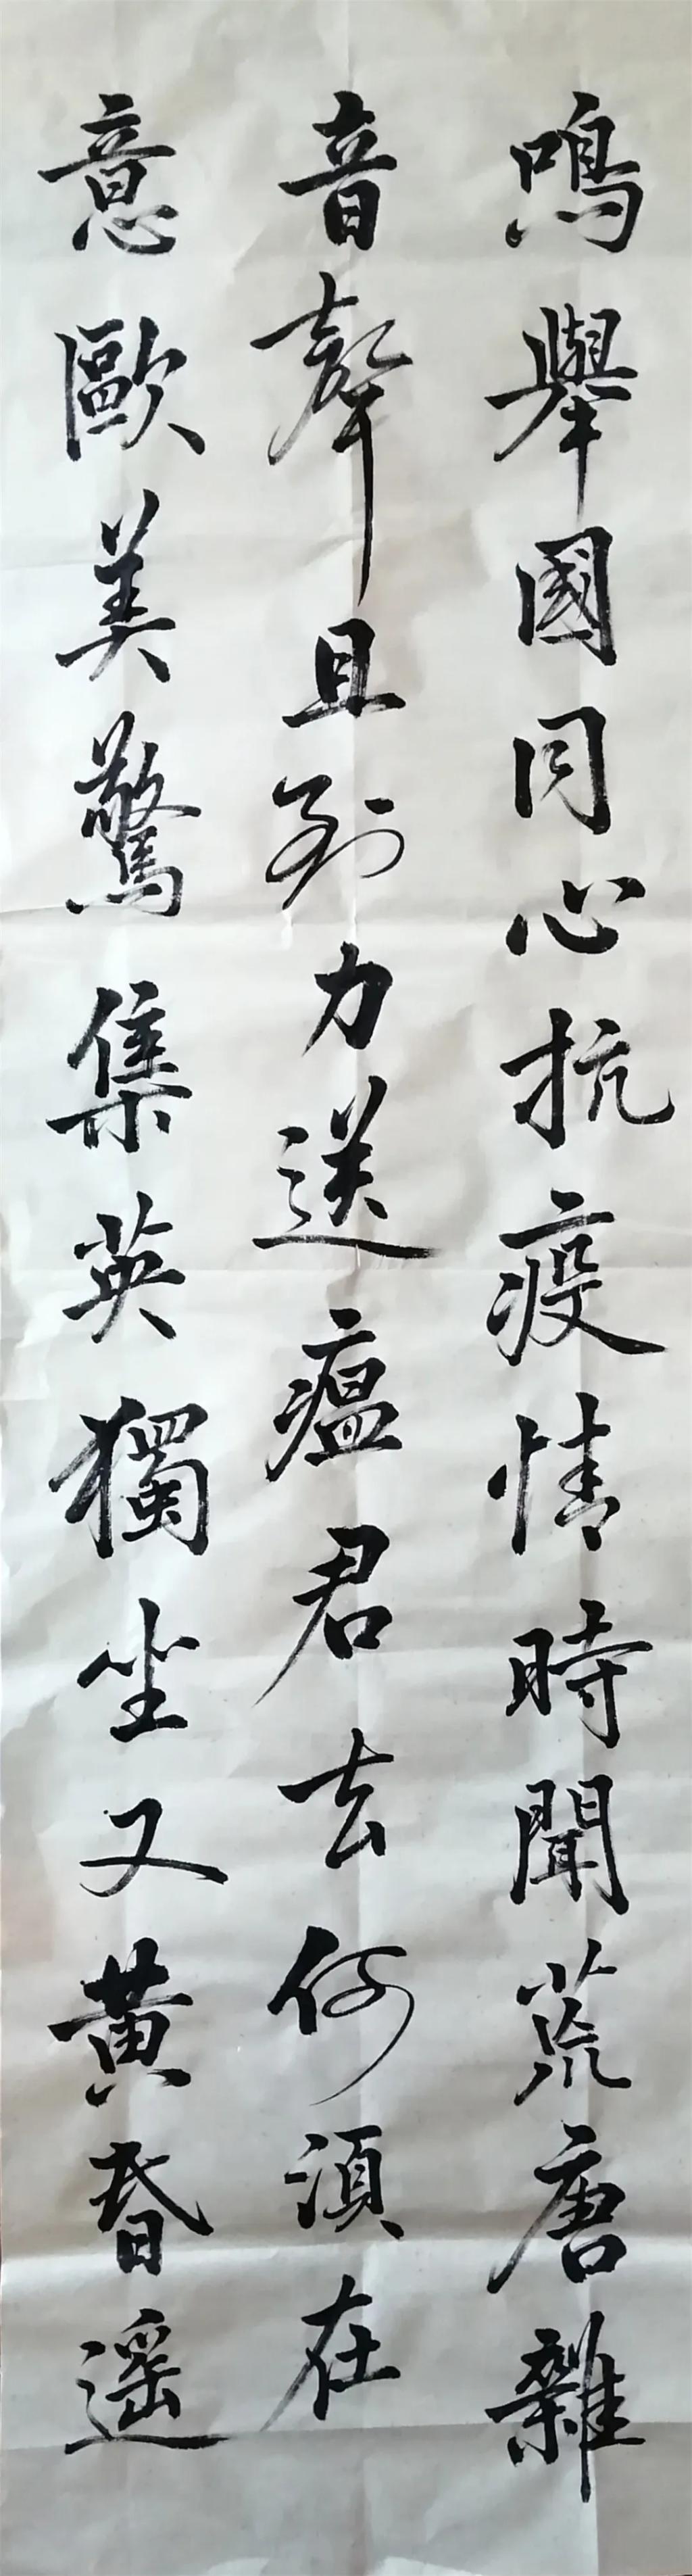 鳴舉國同心抗疫情時聞荒唐雜
音聲且列力送瘟君去何須在
意歐美驚集英獨坐又黄昏遥